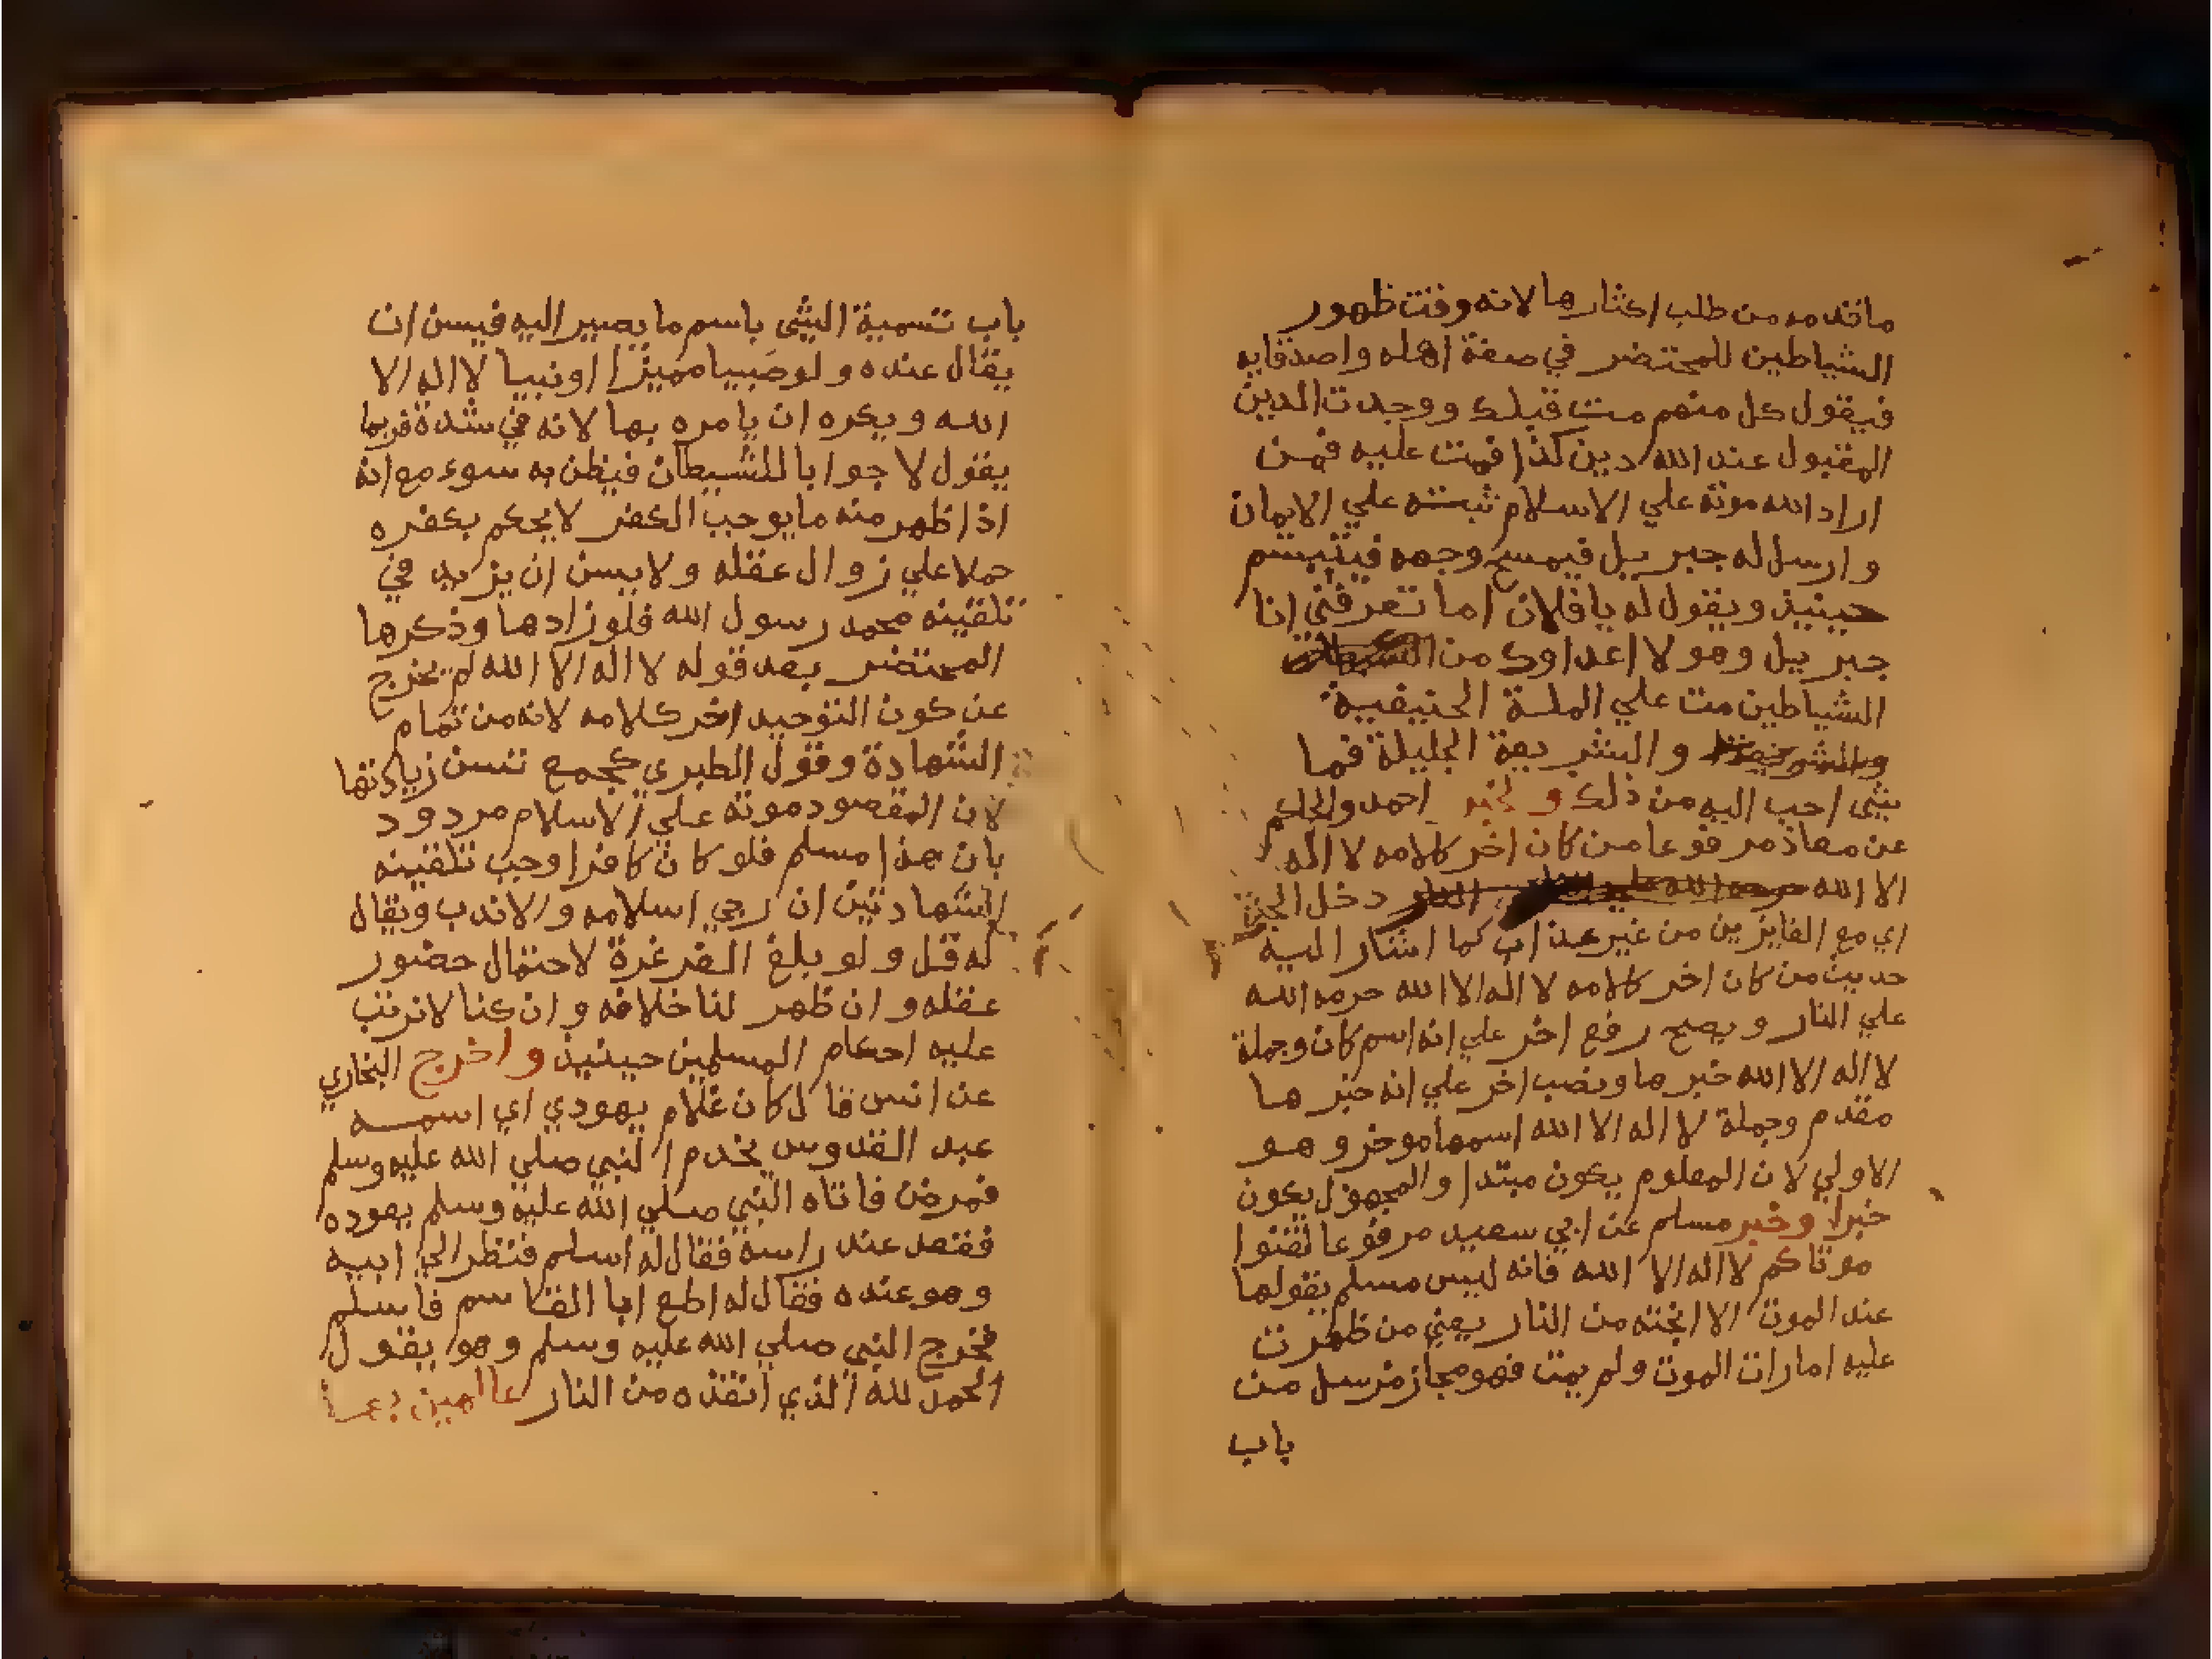 ما قدمه من طلب اكثارها لانه وقت ظهور
الشياطين للمحتضر في صفة اهله واصدقايه
فيقول كل منهم مت قبلك ووجدت الدين
المقبول عند الله دين كذا فمت عليه فمن
اراد الله موته علي الاسلام ثبته علي الايمان
وارسل له جبريل فيمسح وجهه فيتبسم
حينيذ ويقول له يا فلان اما تعرفني انا
جبريل وهولا اعداوك من
الشياطين مت علي الملة الحنيفية
والشريعة الجليلة فما
شي احب اليه من ذلك ولخبر احمد والحاكم
عن معاذ مرفوعا من كان اخر كلامه لا اله
الا الله دخل الجنة
اي مع الفايزين من غير عذاب كما اشار اليه
حديث من كان اخر كلامه لا اله الا الله حرمه الله
علي النار ويصح رفع اخر علي انه اسم كان وجملة
لا اله الا الله خبرها ونصب اخر علي انه خبرها
مقدم وجملة لا اله الا الله اسمها موخر وهو
الاولي لان المعلوم يكون مبتدا والمجهول يكون
خبرا وخبر مسلم عن ابي سعيد مرفوعا لقنوا
موتاكم لا اله الا الله فانه ليس مسلم يقولها
عند الموت الا انجته من النار يعني من ظهرت
عليه امارات الموت ولم يمت فهو مجاز مرسل من
باب
باب تسمية الشي باسم ما يصير اليه فيسن ان
يقال عنده ولو صبيا مميزا او نبيا لا اله الا
الله ويكره ان يامره بها لانه في شدة فربما
يقول لا جوابا للشيطان فيظن به سوء مع انه
اذا ظهر منه ما يوجب الكفر لا يحكم بكفره
حملا علي زوال عقله ولا يسن ان يزيد في
تلقينه محمد رسول الله فلو زادها وذكرها
المحتضر بعد قوله لا اله الا الله لم يخرج
عن كون التوحيد اخر كلامه لانه من تمام
الشهادة وقول الطبري كجمع تسن زيادتها
لان المقصود موته علي الاسلام مردود
بان هذا مسلم فلو كان كافرا وجب تلقينه
الشهادتين ان رجي اسلامه والا ندب ويقال
له قل ولو بلغ الغرغرة لاحتمال حضور
عقله وان ظهر لنا خلافه وان كنا لا نرتب
عليه احكام المسلمين حينيذ واخرج البخاري
عن انس قال كان غلام يهودي اي اسمه
عبد القدوس يخدم النبي صلي الله عليه وسلم
فمرض فاتاه النبي صلي الله عليه وسلم يعوده
فقعد عند راسه فقال له اسلم فنظر الي ابيه
وهو عنده فقال له اطع ابا القاسم فاسلم
فخرج النبي صلي الله عليه وسلم وهو يقول
الحمد لله الذي انقذه من النار